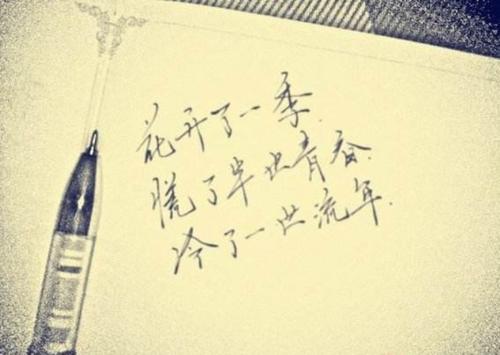 花开了一季.
慌了半世青春.
冷了一世流年.